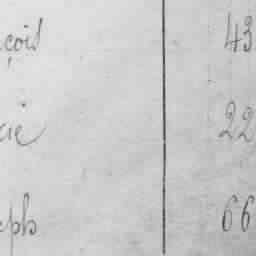 çois 43
cie 22
eph 66